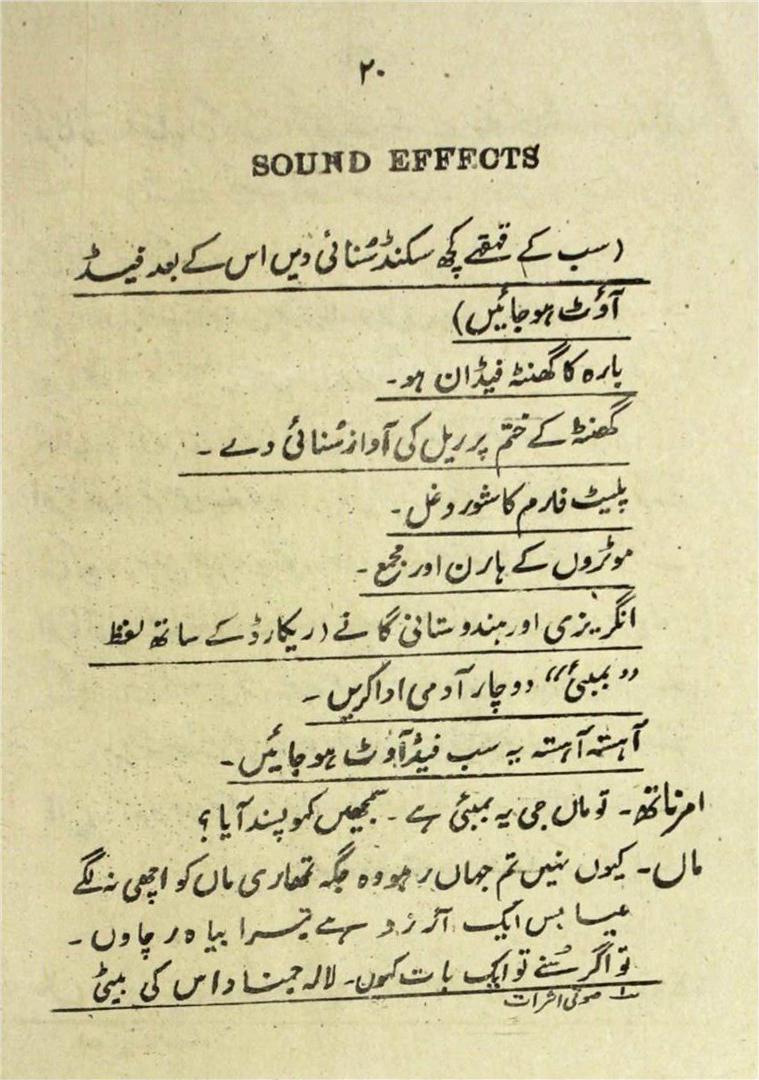 ۲۰
SOUND EFFFCTS
(سب کے قہقہے کچھ سکنڈ سُنائی دیں اس کے بعد فیڈ
آؤٹ ہو جائیں)
بارہ کا گھنٹہ فیڈ ان ہو۔
گھنٹہ کے ختم پر ریل کی آواز سُنائی دے ۔
پلیٹ فارم کا شور و غل ۔
موٹروں کے ہارن اور مجمع ۔
انگریزی اور ہندوستانی گانے (ریکارڈ کے ساتھ لفظ
”بمبئی“ دو چار آدمی ادا کریں ۔
آہستہ آہستہ یہ سب فیڈ آؤٹ ہو جائیں ۔
امرناتھ۔ تو ماں جی یہ بمبئی ہے ۔ تمھیں کہو پسند آیا ؟
ماں۔ کیوں نہیں تم جہاں رہو وہ جگہ تمھاری ماں کو اچھی نہ لگے
بس ایک ہے تیرا بیاہ رچاوں ۔
تو اگر سُنے تو ایک بات کہوں۔ لالہ جمنا داس کی بیٹی
۱؎ صوتی اثرات